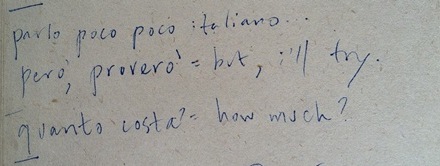 parlo poco poco italiano...
però, proverò = but, i'll try.
quanto costa? = how much?